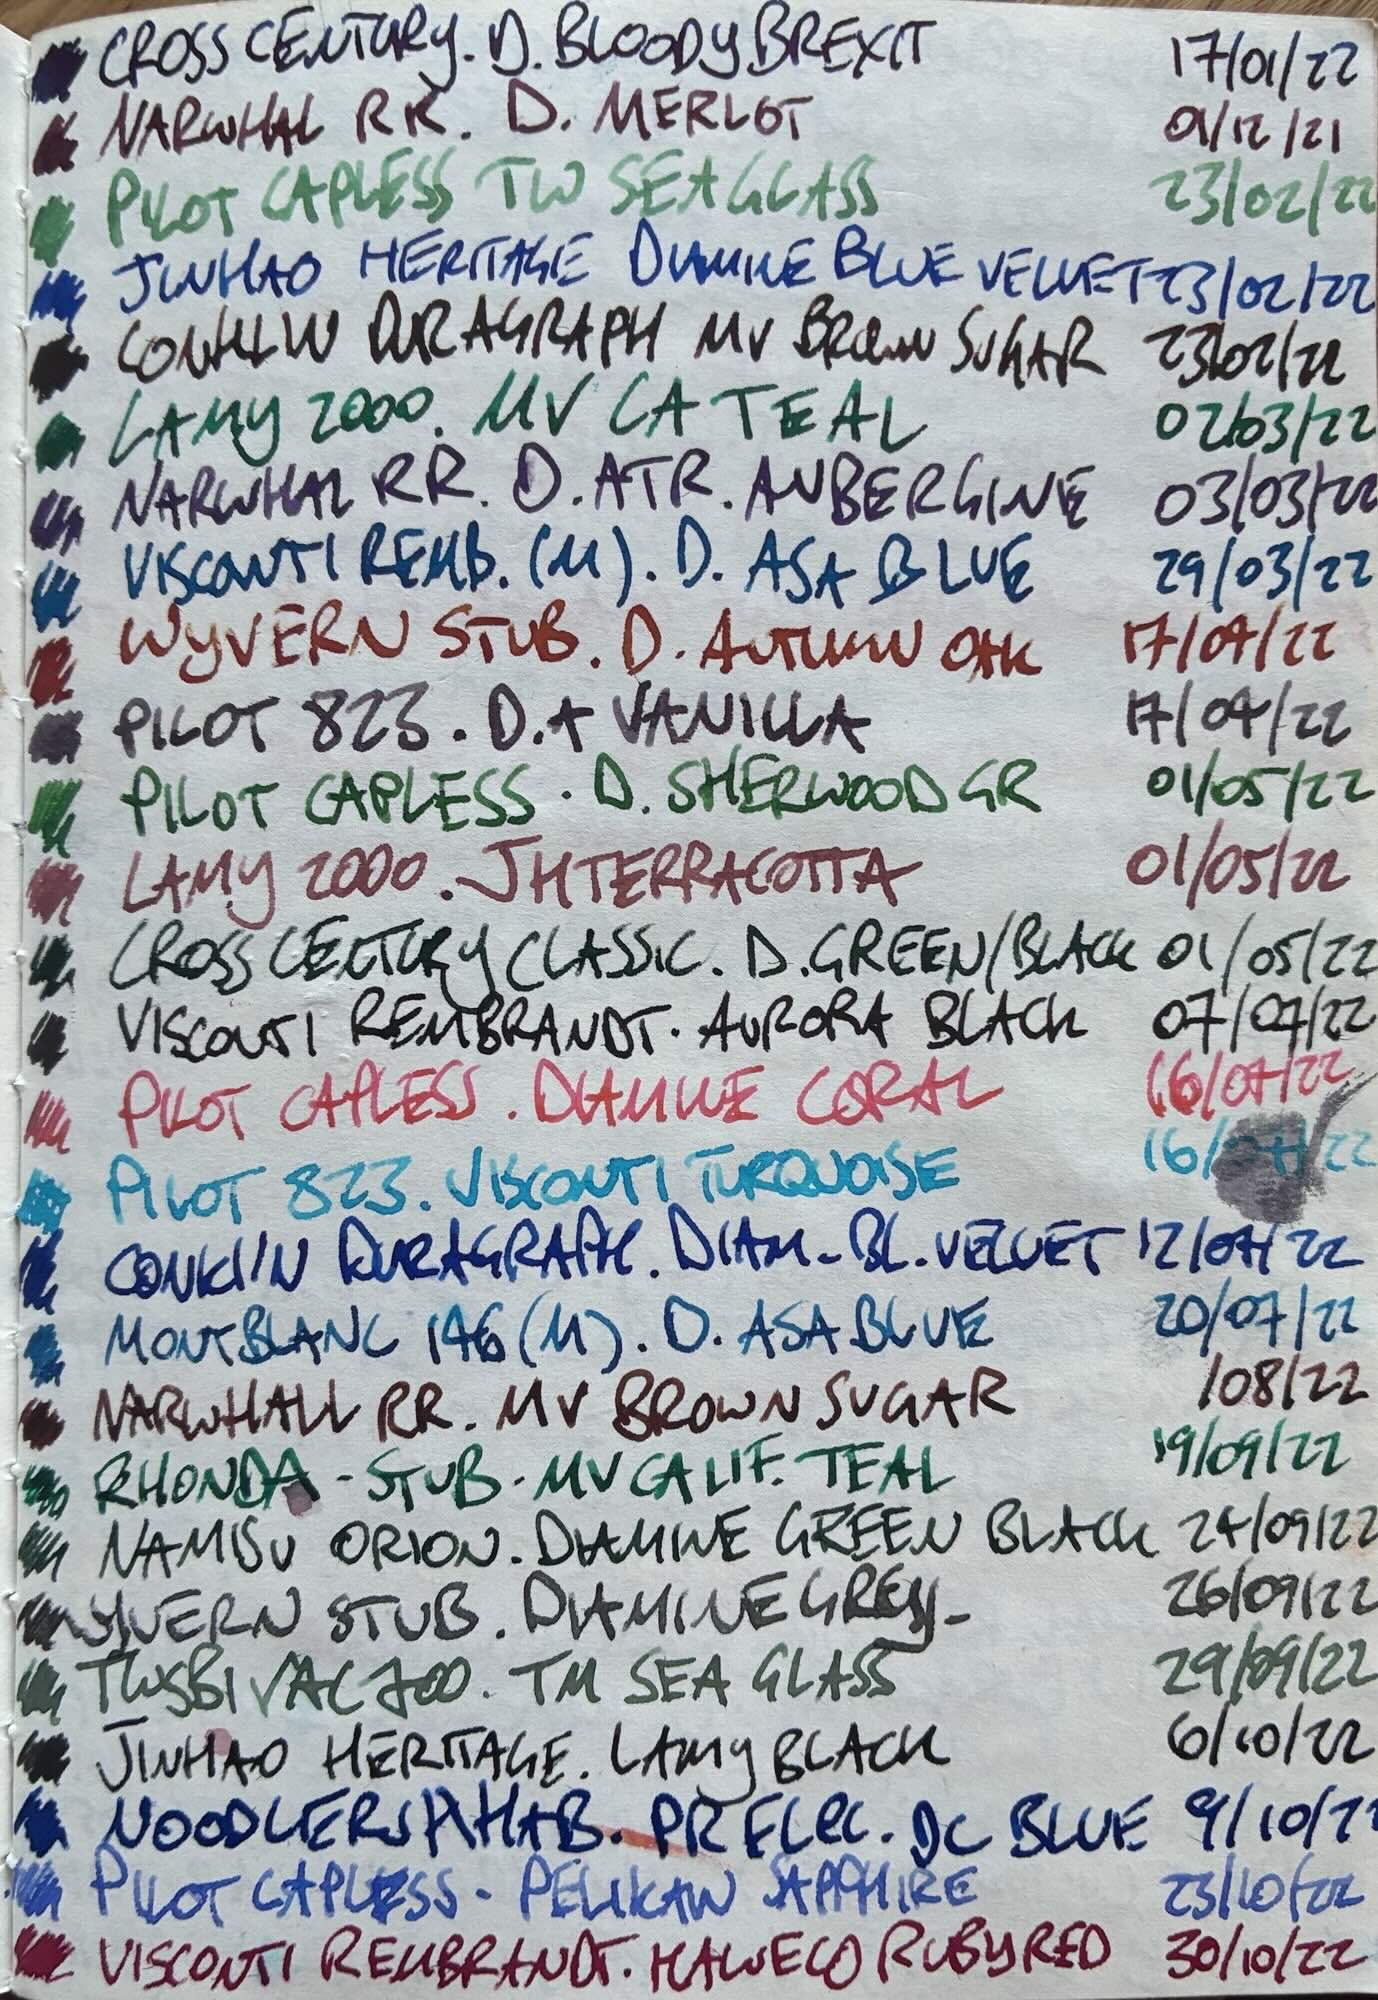 CROSS CENTURY. D. BLOODY BREXIT 17/01/22
NARWHAL RR. D. MERLOT 01/12/21
PILOT CAPLESS TW SEA GLASS 23/02/22
JINHAO HERITAGE DIAMINE BLUE VELVET 23/02/22
CONKLIN DURAGRAPH MV BROWN SUGAR 23/02/22
LAMY 2000. MV CA TEAL 02/03/22
NARWHAL RR. D. ATR. AUBERGINE 03/03/22
VISCONTI REMB. (M). D. ASA BLUE 29/03/22
WYVERN STUB. D. AUTUMN OAK 17/04/22
PILOT 823. D.A VANILLA 17/04/22
PILOT CAPLESS. D. SHERWOOD GR 01/05/22
LAMY 2000. JH TERRACOTTA 01/05/22
CROSS CENTURY CLASSIC. D. GREEN/BLACK 01/05/22
VISCONTI REMBRANDT. AURORA BLACK 07/07/22
PILOT CAPLESS. DIAMINE CORAL 16/07/22
PILOT 823. VISCONTI TURQUOISE 16/07/22
CONKLIN DURAGRAPH. DIAM. BL. VELVET 12/07/22
MONTBLANC 146 (M). D. ASA BLUE 20/07/22
NARWHALL RR. MV BROWN SUGAR /08/22
RHONDA - STUB. MV CALIF. TEAL 19/09/22
NAMISU ORION. DIAMINE GREEN BLACK 24/09/22
WYVERN STUB. DIAMINE GREY_ 26/09/22
TWSBI VAC 700. TM SEA GLASS 29/09/22
JINHAO HERITAGE. LAMY BLACK 6/10/22
NOODLERS AHAB. PR ELEC. DC BLUE 9/10/22
PILOT CAPLESS - PELIKAN SAPPHIRE 23/10/22
VISCONTI REMBRANDT. KAWECO RUBY RED 30/10/22